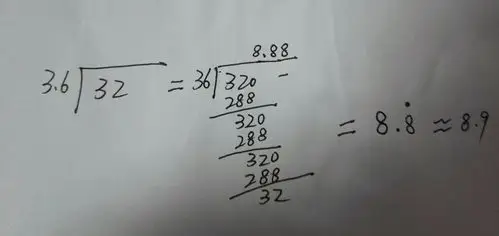 8.88
3.6 32 = 36 320 -
288
320
288
320
288
32
= 8.8̇ ≈ 8.9